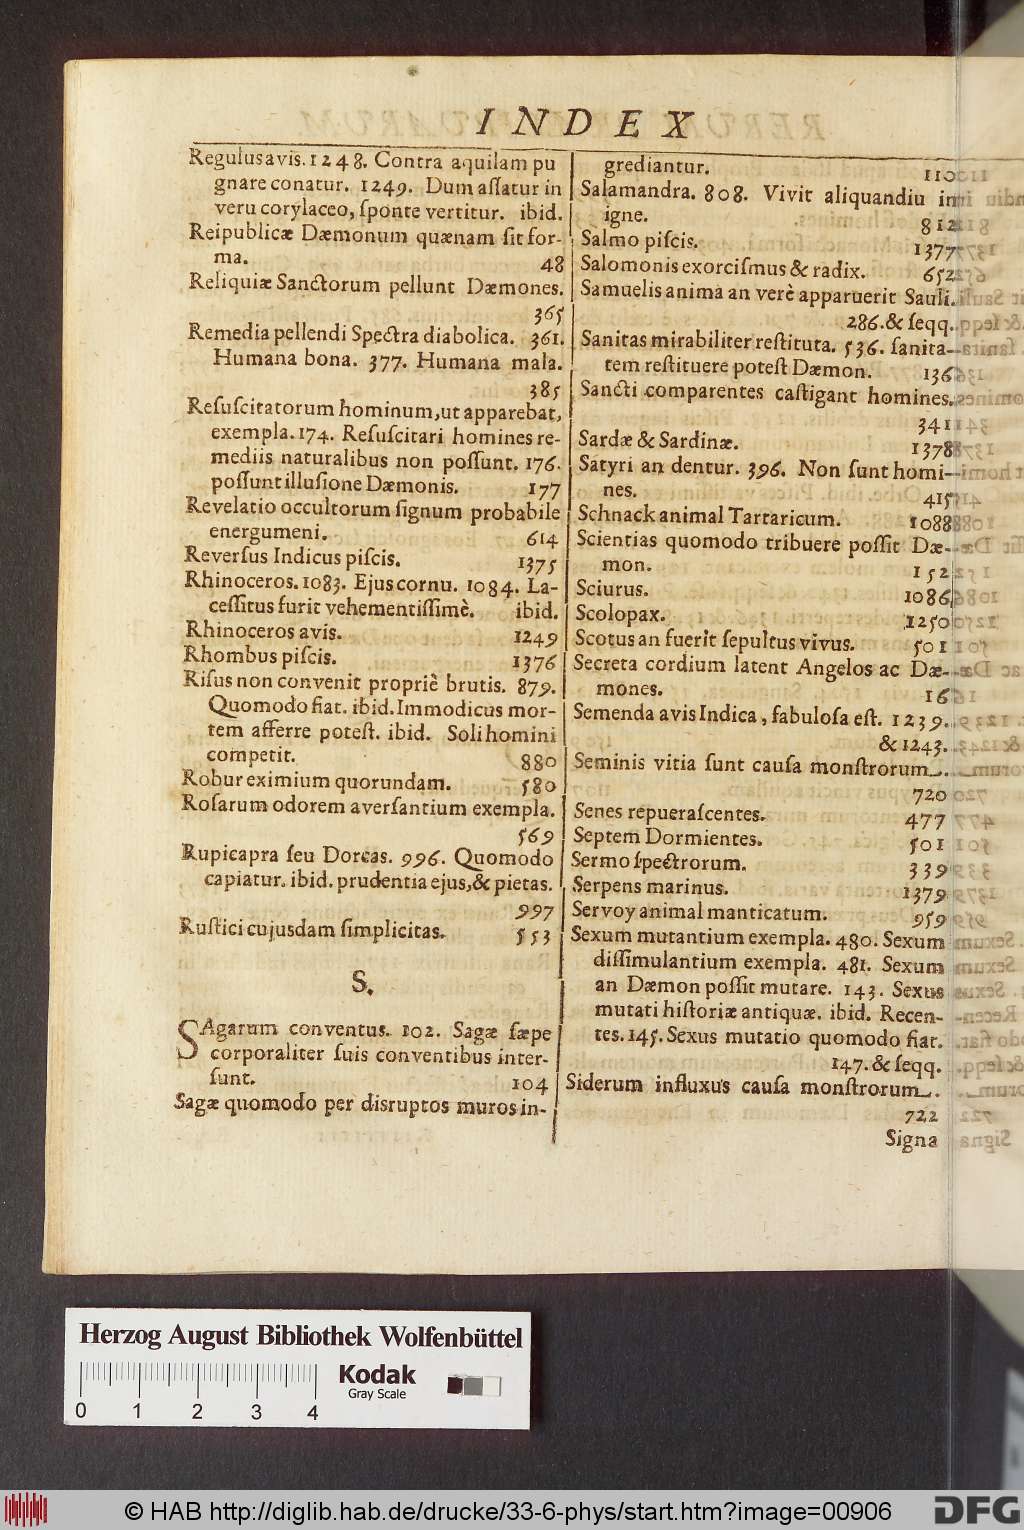 INDEX
Regulus avis. 1248. Contra aquilam pu
gnare conatur. 1249. Dum aſſatur in
veru corylaceo, ſponte vertitur. ibid.
Reipublicæ Dæmonum quænam ſit for-
ma. 48
Reliquiæ Sanctorum pellunt Dæmones.
365
Remedia pellendi Spectra diabolica. 361.
Humana bona. 377. Humana mala.
385
Reſuſcitatorum hominum, ut apparebat,
exempla. 174. Reſuſcitari homines re-
mediis naturalibus non poſſunt. 176.
poſſunt illuſione Dæmonis. 177
Revelatio occultorum ſignum probabile
energumeni. 614
Reverſus Indicus piſcis. 1375
Rhinoceros. 1083. Ejus cornu. 1084. La-
ceſſitus furit vehementiſſimè. ibid.
Rhinoceros avis. 1249
Rhombus piſcis. 1376
Riſus non convenit propriè brutis. 879.
Quomodo fiat. ibid. Immodicus mor-
tem afferre poteſt. ibid. Soli homini
competit. 880
Robur eximium quorundam. 580
Roſarum odorem averſantium exempla.
569
Rupicapra ſeu Dorcas. 996. Quomodo
capiatur. ibid. prudentia ejus, & pietas.
997
Ruſtici cujusdam ſimplicitas. 553
S.
SAgarum conventus. 102. Sagæ ſæpe
corporaliter ſuis conventibus inter-
ſunt. 104
Sagæ quomodo per disruptos muros in-
grediantur. 110
Salamandra. 808. Vivit aliquandiu in
igne. 812
Salmo piſcis. 1377
Salomonis exorciſmus & radix. 652
Samuelis anima an verè apparuerit Sauli.
286. & ſeqq.
Sanitas mirabiliter reſtituta. 536. ſanita-
tem reſtituere poteſt Dæmon. 136
Sancti comparentes caſtigant homines.
341
Sardæ & Sardinæ. 1378
Satyri an dentur. 396. Non ſunt homi-
nes. 415
Schnack animal Tartaricum. 1088
Scientias quomodo tribuere poſſit Dæ-
mon. 152
Sciurus. 1086
Scolopax. 1250
Scotus an fuerit ſepultus vivus. 501
Secreta cordium latent Angelos ac Dæ-
mones. 16
Semenda avis Indica, fabuloſa eſt. 1239.
& 1243.
Seminis vitia ſunt cauſa monſtrorum.
720
Senes repueraſcentes. 477
Septem Dormientes. 501
Sermo ſpectrorum. 339
Serpens marinus. 1379
Servoy animal manticatum. 959
Sexum mutantium exempla. 480. Sexum
diſſimulantium exempla. 481. Sexum
an Dæmon poſſit mutare. 143. Sexus
mutati hiſtoriæ antiquæ. ibid. Recen-
tes. 145. Sexus mutatio quomodo fiat.
147. & ſeqq.
Siderum influxus cauſa monſtrorum.
722
Signa
Herzog August Bibliothek Wolfenbüttel
Kodak
Gray Scale
0 1 2 3 4
© HAB http://diglib.hab.de/drucke/33-6-phys/start.htm?image=00906
DFG